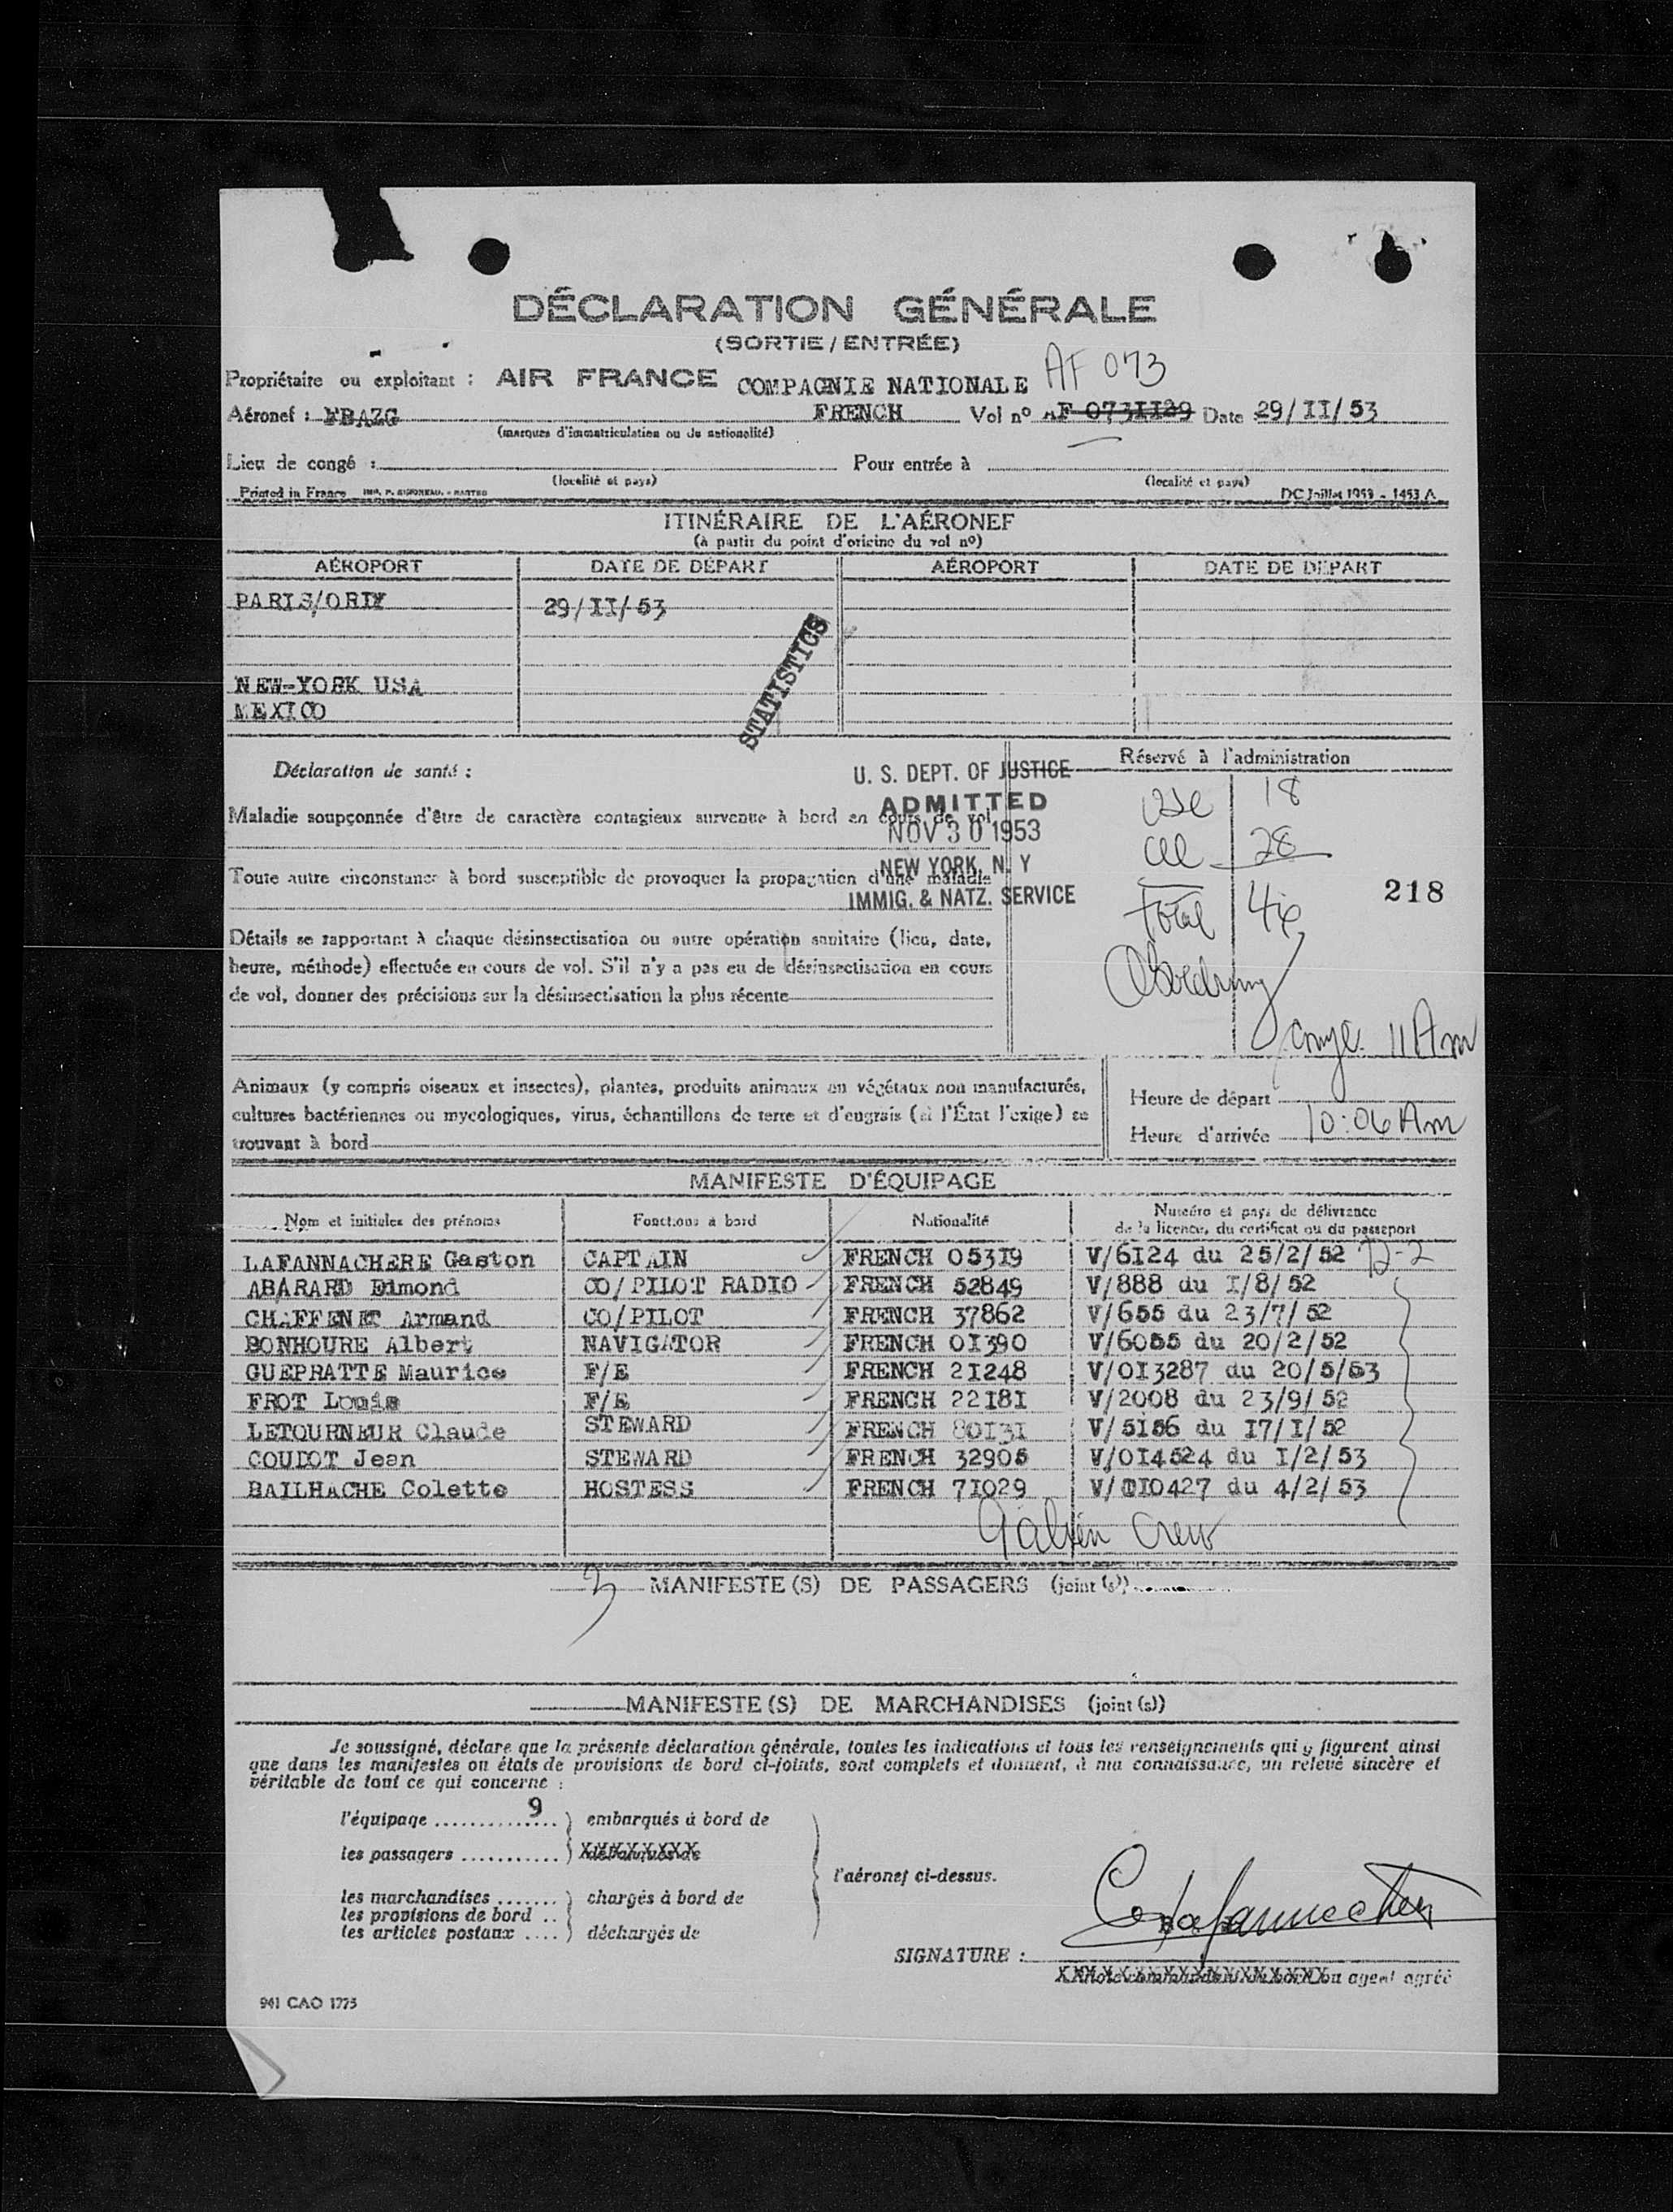 DÉCLARATION GÉNÉRALE
(SORTIE / ENTRÉE)
Propriétaire ou exploitant : AIR FRANCE COMPAGNIE NATIONALE AF 073
Aéronef : FBAZG FRENCH Vol nº AF 073II29 Date 29/II/53
(marques d'immatriculation ou de nationalité)
Lieu de congé : Pour entrée à
(localité et pays) (localité et pays)
Printed in France DC Juillet 1953 - 1453 A
ITINÉRAIRE DE L'AÉRONEF
(à partir du point d'origine du vol nº)
AÉROPORT DATE DE DÉPART AÉROPORT DATE DE DÉPART
PARIS/ORLY 29/II/53
STATISTICS
NEW-YORK USA
MEXICO
Déclaration de santé : Réservé à l'administration
U. S. DEPT. OF JUSTICE
ADMITTED
NOV 30 1953
NEW YORK, N. Y
IMMIG. & NATZ. SERVICE
Maladie soupçonnée d'être de caractère contagieux survenue à bord en cours de vol
Toute autre circonstance à bord susceptible de provoquer la propagation d'une maladie
18
28
Total 46
218
Détails se rapportant à chaque désinsectisation ou autre opération sanitaire (lieu, date,
heure, méthode) effectuée en cours de vol. S'il n'y a pas eu de désinsectisation en cours
de vol, donner des précisions sur la désinsectisation la plus récente
11 Am
Animaux (y compris oiseaux et insectes), plantes, produits animaux ou végétaux non manufacturés,
cultures bactériennes ou mycologiques, virus, échantillons de terre et d'engrais (si l'État l'exige) se
trouvant à bord
Heure de départ
Heure d'arrivée 10:06 Am
MANIFESTE D'ÉQUIPAGE
Nom et initiales des prénoms Fonctions à bord Nationalité Numéro et pays de délivrance
de la licence, du certificat ou du passeport
LAFANNACHERE Gaston CAPTAIN FRENCH 05319 V/6124 du 25/2/52 D-2
ABARARD Edmond CO/PILOT RADIO FRENCH 52849 V/888 du I/8/52
CHAFFENET Armand CO/PILOT FRENCH 37862 V/655 du 23/7/52
BONHOURE Albert NAVIGATOR FRENCH 0I390 V/6055 du 20/2/52
GUEPRATTE Maurice F/E FRENCH 21248 V/0I3287 du 20/5/53
FROT Louis F/E FRENCH 22I8I V/2008 du 23/9/52
LETOURNEUR Claude STEWARD FRENCH 80I3I V/5I56 du I7/I/52
COUDOT Jean STEWARD FRENCH 32905 V/0I4524 du I/2/53
BAILHACHE Colette HOSTESS FRENCH 7I029 V/0I0427 du 4/2/53
9 alien Crew
3 MANIFESTE(S) DE PASSAGERS (joint(s))
MANIFESTE(S) DE MARCHANDISES (joint(s))
Je soussigné, déclare que la présente déclaration générale, toutes les indications et tous les renseignements qui y figurent ainsi
que dans les manifestes ou états de provisions de bord ci-joints, sont complets et donnent, à ma connaissance, un relevé sincère et
véritable de tout ce qui concerne :
l'équipage 9 embarqués à bord de
les passagers débarqués de
l'aéronef ci-dessus.
les marchandises chargés à bord de
les provisions de bord
les articles postaux déchargés de
SIGNATURE :
ou agent agréé
941 CAO 1775